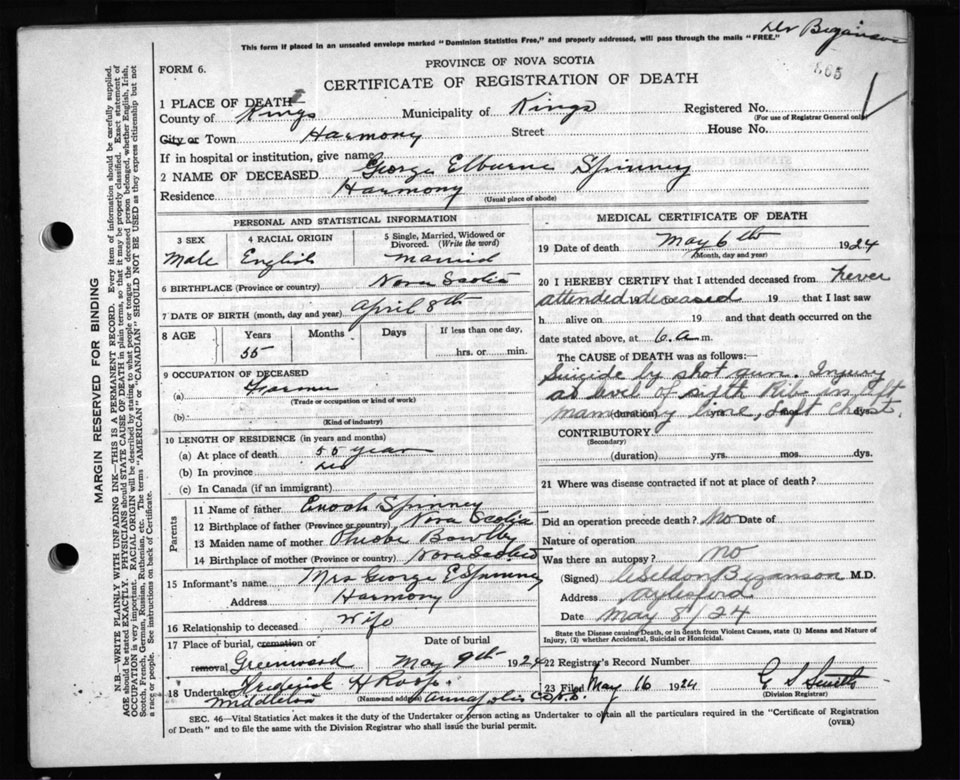 Dr Bezanson
This form if placed in an unsealed envelope marked "Dominion Statistics Free," and properly addressed, will pass through the mails "FREE."
865
FORM 6.
PROVINCE OF NOVA SCOTIA
CERTIFICATE OF REGISTRATION OF DEATH
1 PLACE OF DEATH
County of Kings Municipality of Kings Registered No.
(For use of Registrar General only)
City or Town Harmony Street House No.
If in hospital or institution, give name
2 NAME OF DECEASED George Elburne Spinney
Residence Harmony
(Usual place of abode)
MARGIN RESERVED FOR BINDING
N.B.—WRITE PLAINLY WITH UNFADING INK—THIS IS A PERMANENT RECORD. Every item of information should be carefully supplied.
AGE should be stated EXACTLY. PHYSICIANS should STATE CAUSE OF DEATH in plain terms, so that it may be properly classified. Exact statement of
OCCUPATION is very important. RACIAL ORIGIN will be described by stating to what people or tongue the deceased person belonged, whether English, Irish,
Scotch, French, German, Russian, Ruthenian, etc. The terms "AMERICAN" or "CANADIAN" SHOULD NOT BE USED as they express citizenship but not
a race or people. See instructions on back of Certificate.
PERSONAL AND STATISTICAL INFORMATION
3 SEX 4 RACIAL ORIGIN 5 Single, Married, Widowed or
Divorced. (Write the word)
Male English Married
6 BIRTHPLACE (Province or country) Nova Scotia
7 DATE OF BIRTH (month, day and year) April 8th
8 AGE Years Months Days If less than one day,
55 hrs. or min.
9 OCCUPATION OF DECEASED
(a) Farmer
(Trade or occupation or kind of work)
(b)
(Kind of industry)
10 LENGTH OF RESIDENCE (in years and months)
(a) At place of death 55 years
(b) In province
(c) In Canada (if an immigrant)
Parents
11 Name of father Enoch Spinney
12 Birthplace of father (Province or country) Nova Scotia
13 Maiden name of mother Phoebe Bowlby
14 Birthplace of mother (Province or country) Nova Scotia
15 Informant's name Mrs George E Spinney
Address Harmony
16 Relationship to deceased Wife
17 Place of burial, cremation or Date of burial
removal Greenwood May 9th 1924
18 Undertaker Frederick H Roop
(Name and address)
Middleton Annapolis Co N.S.
MEDICAL CERTIFICATE OF DEATH
19 Date of death May 6th 1924
(Month, day and year)
20 I HEREBY CERTIFY that I attended deceased from never
attended deceased 19 that I last saw
h alive on 19 and that death occurred on the
date stated above, at 6.a.m.
The CAUSE of DEATH was as follows:
Suicide by shot gun. Injury
at level of sixth Rib in left
mammary line, Left Chest.
(duration) yrs. dys.
CONTRIBUTORY.
(Secondary)
(duration) yrs. mos. dys.
21 Where was disease contracted if not at place of death?
Did an operation precede death? No Date of
Nature of operation
Was there an autopsy? no
(Signed) Weldon Bezanson M.D.
Address Aylesford
Date May 8/24
State the Disease causing Death, or in death from Violent Causes, state (1) Means and Nature of
Injury, (2) whether Accidental, Suicidal or Homicidal.
22 Registrar's Record Number
23 Filed May 16 1924 G S Smith
(Division Registrar)
SEC. 46—Vital Statistics Act makes it the duty of the Undertaker or person acting as Undertaker to obtain all the particulars required in the "Certificate of Registration
of Death" and to file the same with the Division Registrar who shall issue the burial permit.
(OVER)